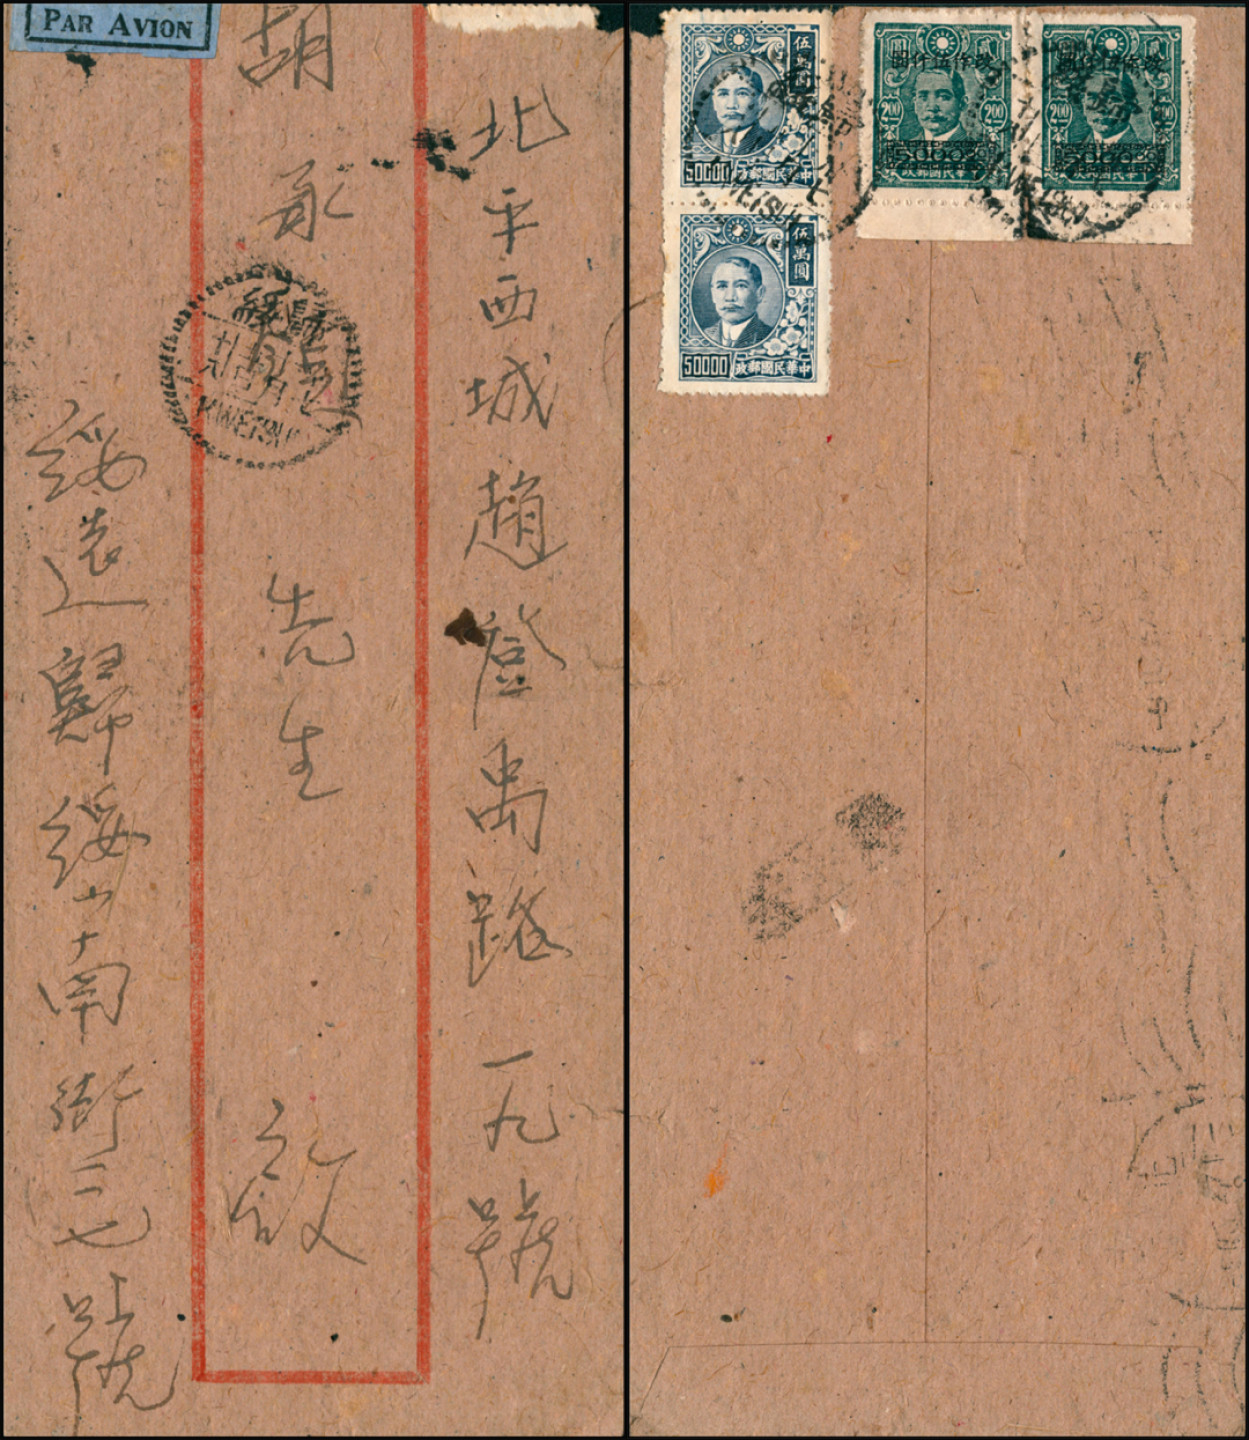 PAR AVION
北平西城趙登禹路一九號
胡承先生啟
綏遠歸綏小南街三七號
歸綏
KWEISUI
伍萬圓
50000
中華民國郵政
伍萬圓
50000
中華民國郵政
改作伍仟圓
200
200
5000
中華民國郵政
改作伍仟圓
200
5000
中華民國郵政
KWEISUI